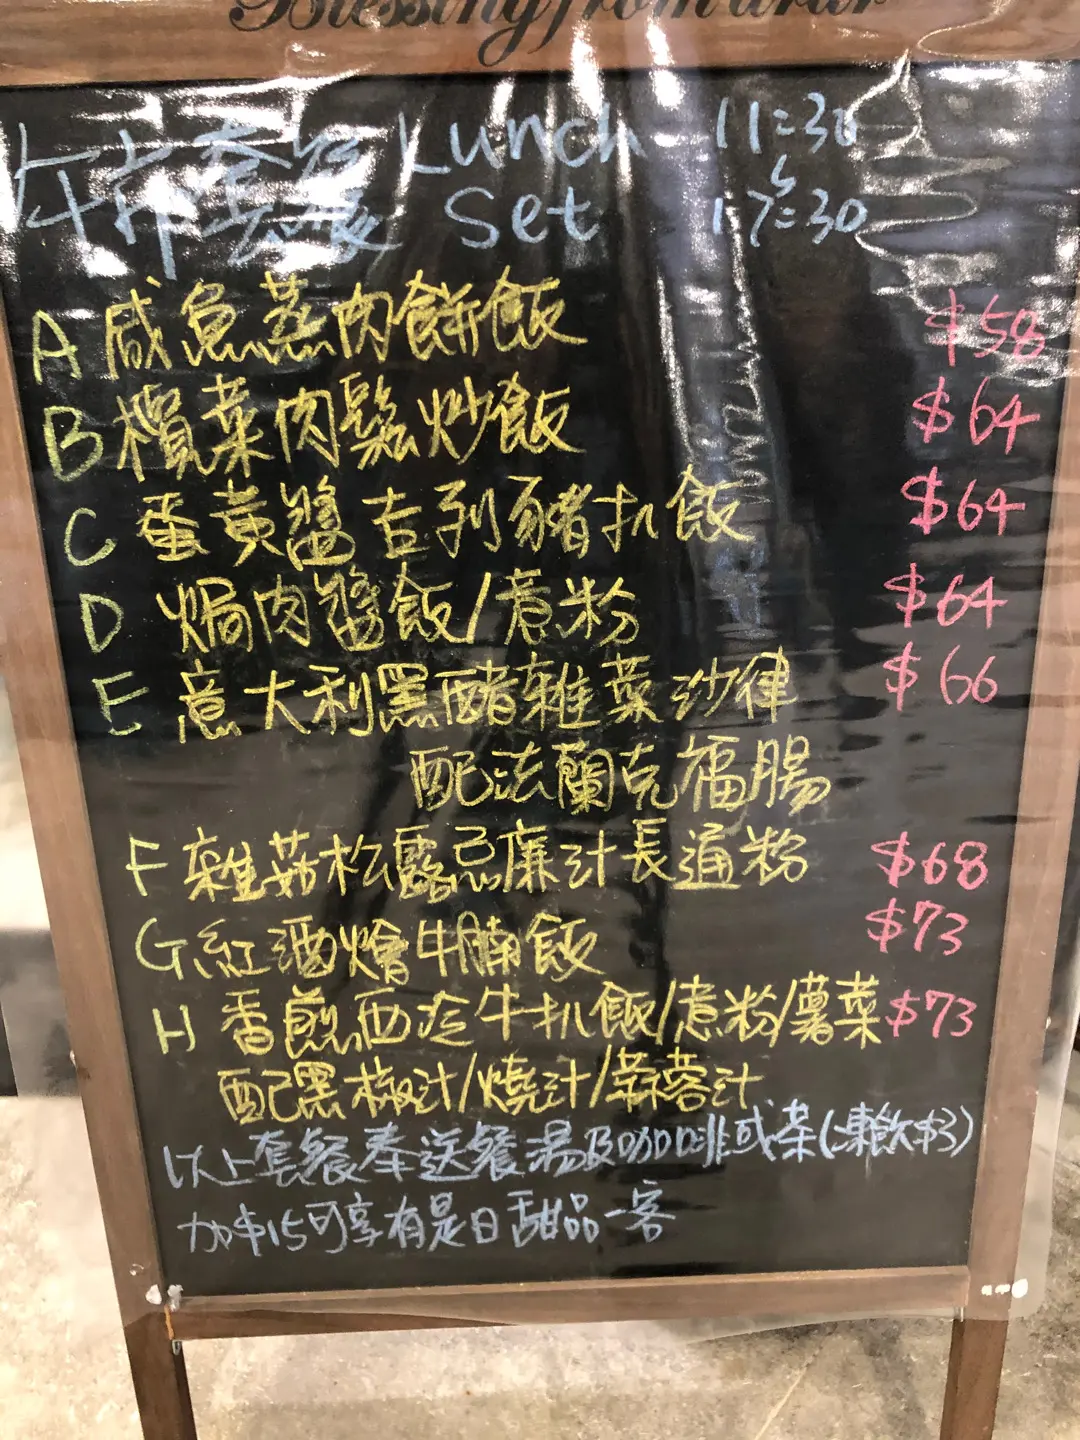 Blessing from
午市套餐 Lunch 11:30
Set 17:30
A 咸魚蒸肉餅飯 $58
B 欖菜肉鬆炒飯 $64
C 蛋黃醬吉列豬扒飯 $64
D 焗肉醬飯/意粉 $64
E 意大利黑醋雜菜沙律 $66
配法蘭克福腸
F 雜菇松露忌廉汁長通粉 $68
G 紅酒燴牛腩飯 $73
H 香煎西冷牛扒飯/意粉/薯菜 $73
配黑椒汁/燒汁/蒜蓉汁
以上套餐奉送餐湯及咖啡或茶(凍飲$3)
加$15可享有是日甜品一客